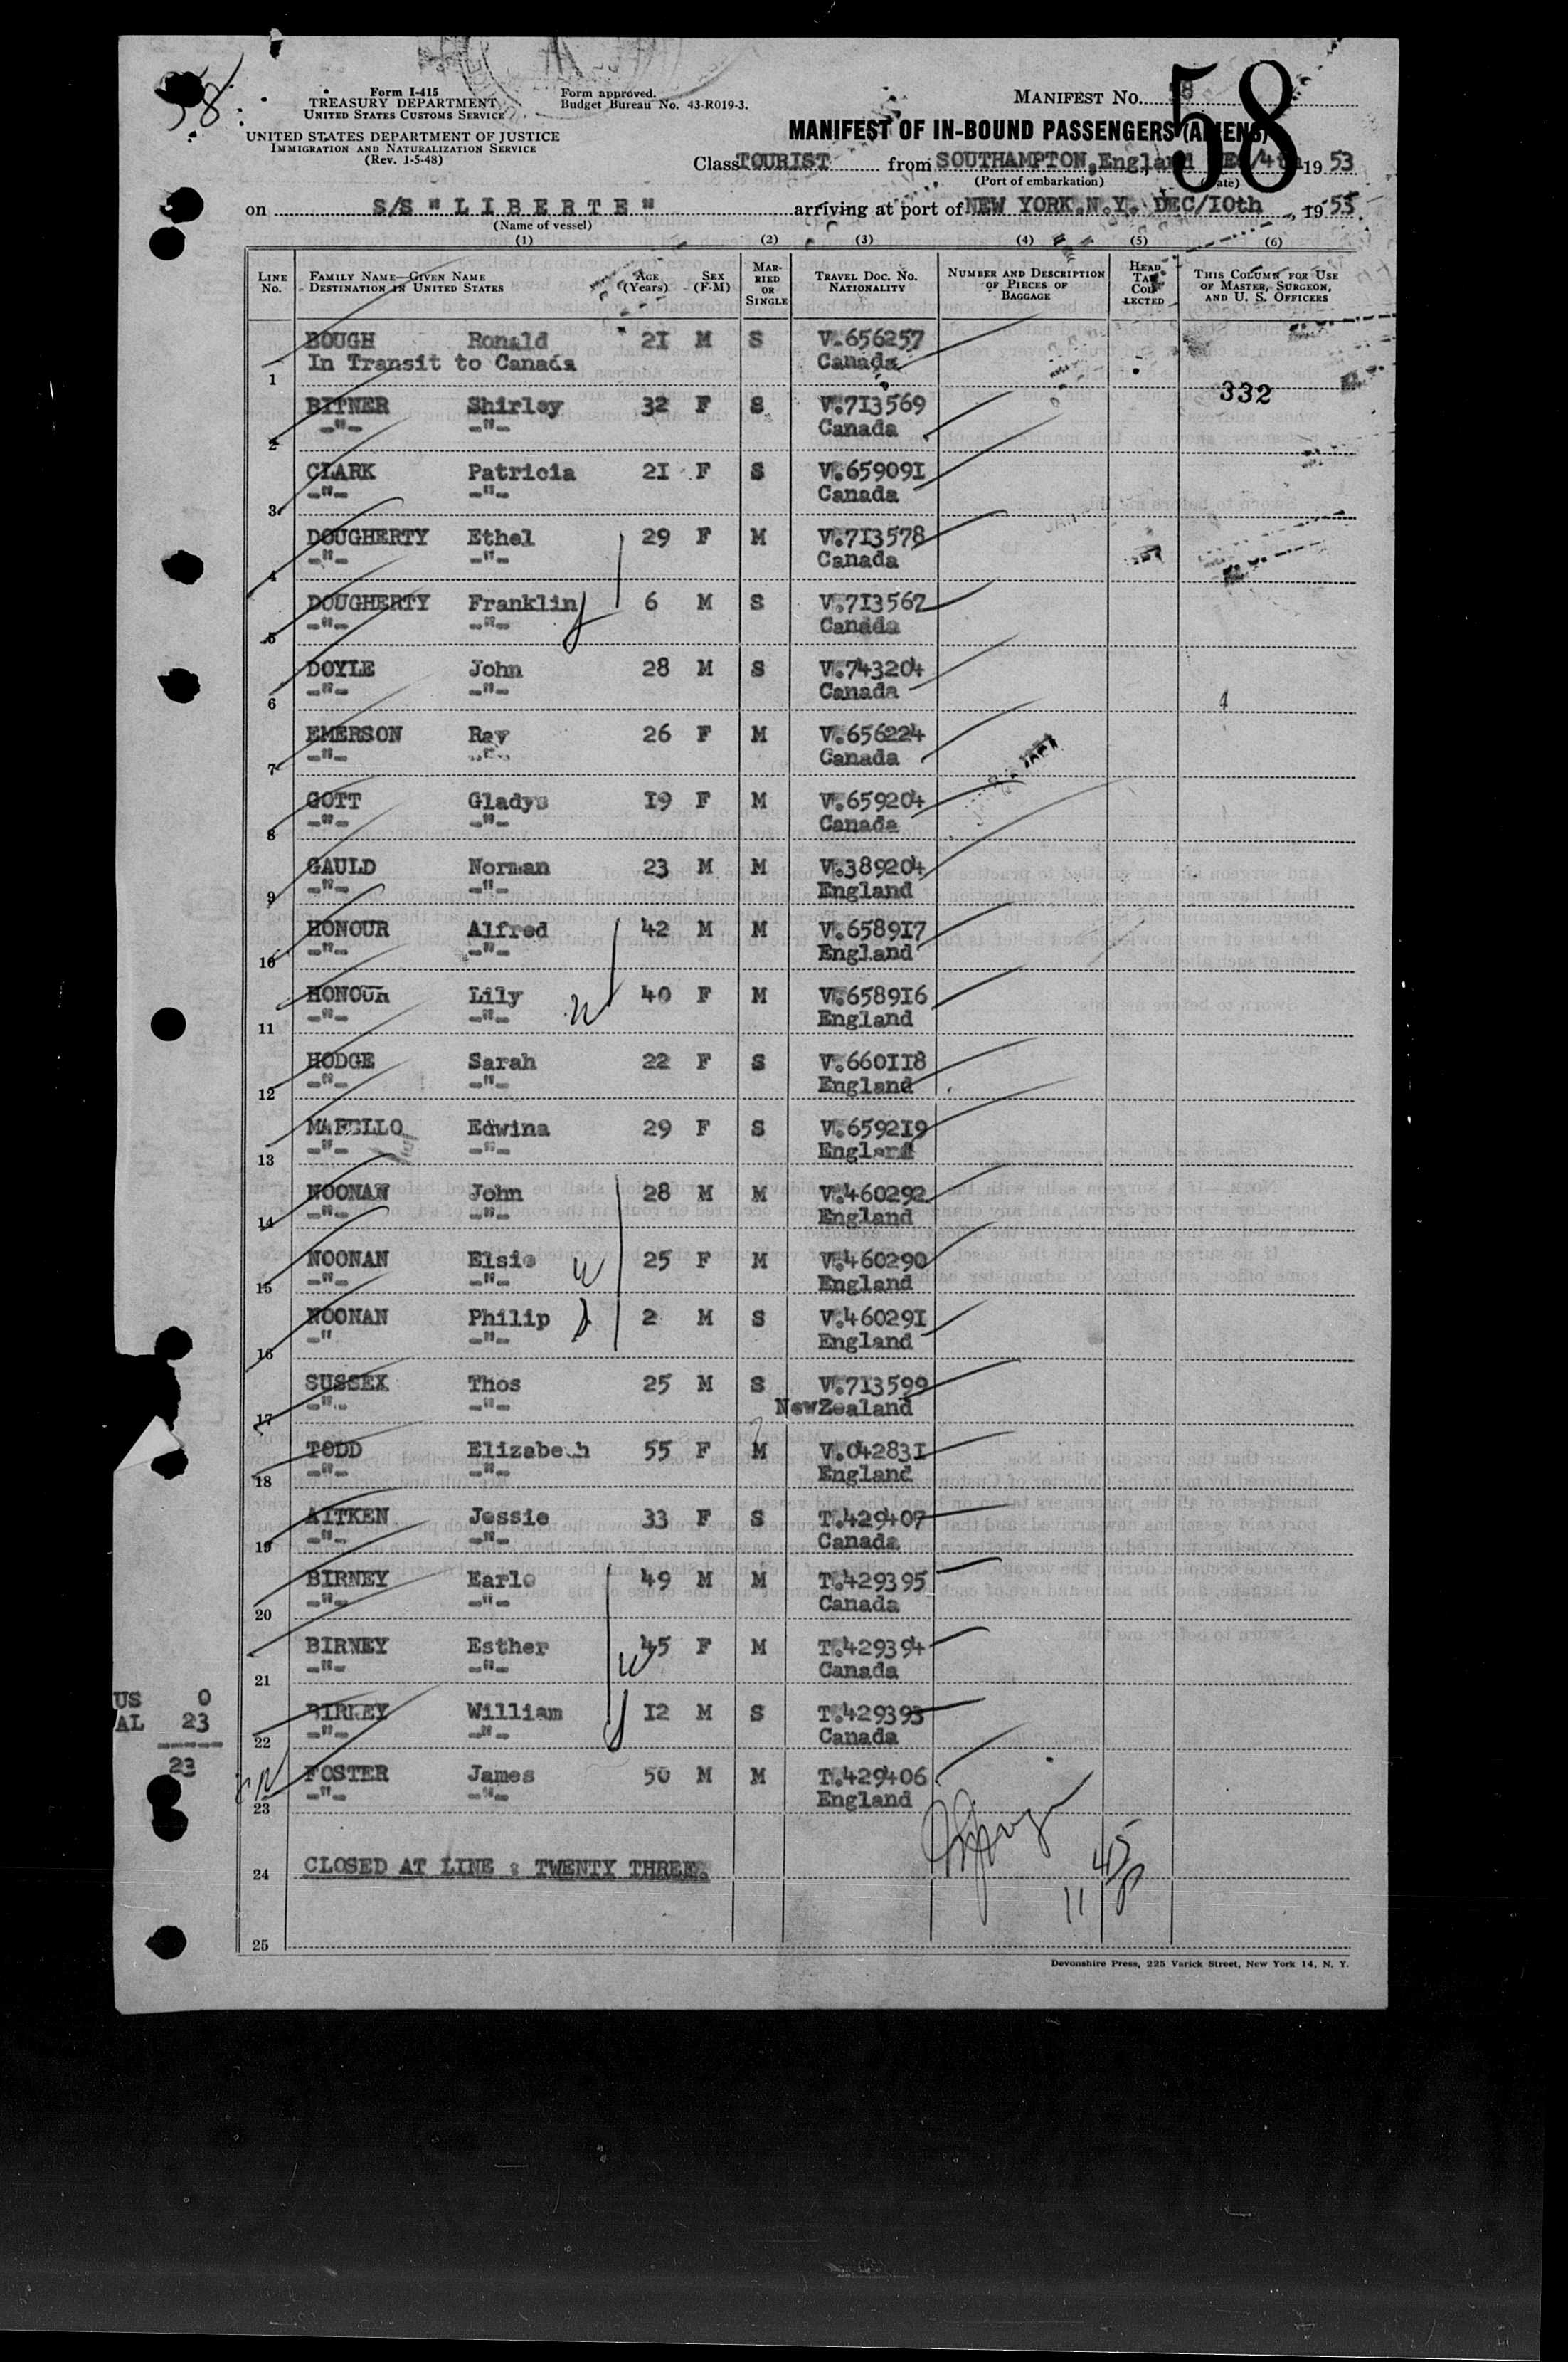 58
Form I-415
TREASURY DEPARTMENT
UNITED STATES CUSTOMS SERVICE
UNITED STATES DEPARTMENT OF JUSTICE
IMMIGRATION AND NATURALIZATION SERVICE
(Rev. 1-5-48)
Form approved.
Budget Bureau No. 43-R019-3.
MANIFEST No. 58
58
MANIFEST OF IN-BOUND PASSENGERS (ALIENS)
Class TOURIST from SOUTHAMPTON, England DEC/4th 19 53
(Port of embarkation) (Date)
on S/S "LIBERTE" arriving at port of NEW YORK.N.Y. DEC/10th, 19 53
(Name of vessel)
(1) (2) (3) (4) (5) (6)
LINE No. FAMILY NAME—GIVEN NAME DESTINATION IN UNITED STATES AGE (Years) SEX (F-M) MARRIED OR SINGLE TRAVEL DOC. No. NATIONALITY NUMBER AND DESCRIPTION OF PIECES OF BAGGAGE HEAD TAX COLLECTED THIS COLUMN FOR USE OF MASTER, SURGEON, AND U. S. OFFICERS
BOUGH Ronald 21 M S V.656257
1 In Transit to Canada Canada
332
BITNER Shirley 32 F S V.713569
2 -"- -"- Canada
CLARK Patricia 21 F S V.659091
3 -"- -"- Canada
DOUGHERTY Ethel 29 F M V.713578
4 -"- -"- Canada
DOUGHERTY Franklin 6 M S V.713567
5 -"- -"- Canada
DOYLE John 28 M S V.743204
6 -"- -"- Canada
EMERSON Ray 26 F M V.656224
7 -"- -"- Canada
GOTT Gladys 19 F M V.659204
8 -"- -"- Canada
GAULD Norman 23 M M V.389204
9 -"- -"- England
HONOUR Alfred 42 M M V.658917
10 -"- -"- England
HONOUR Lily W 40 F M V.658916
11 -"- -"- England
HODGE Sarah 22 F S V.660118
12 -"- -"- England
Edwina 29 F S V.659219
13 -"- -"- England
NOONAN John 28 M M V.460292
14 -"- -"- England
NOONAN Elsie W 25 F M V.460290
15 -"- -"- England
NOONAN Philip 2 M S V.460291
16 -" -"- England
SUSSEX Thos 25 M S V.713599
17 -"- -"- NewZealand
TODD Elizabeth 55 F M V.042831
18 -"- -"- England
AITKEN Jessie 33 F S T.429407
19 -"- -"- Canada
BIRNEY Earle 49 M M T.429395
20 -"- -"- Canada
BIRNEY Esther W 45 F M T.429394
21 -"- -"- Canada
BIRNEY William 12 M S T.429393
22 -"- -"- Canada
FOSTER James 50 M M T.429406
23 -"- -"- England
US 0
AL 23
23
24 CLOSED AT LINE : TWENTY THREE.
25
Devonshire Press, 225 Varick Street, New York 14, N. Y.